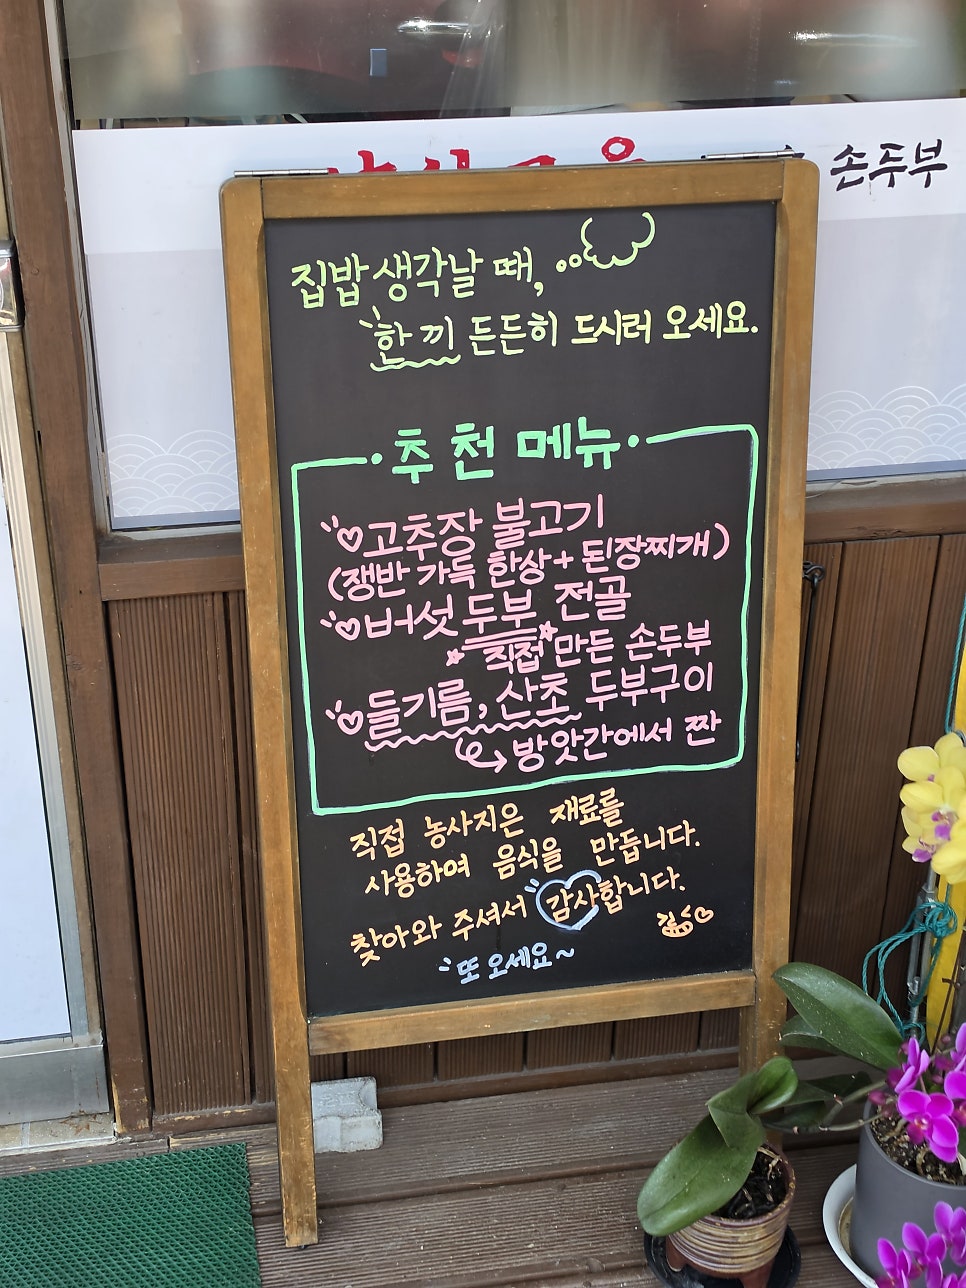 손두부
집밥 생각날 때,
한 끼 든든히 드시러 오세요.
추천 메뉴
고추장 불고기
(쟁반 가득 한상+ 된장찌개)
버섯 두부 전골
직접 만든 손두부
들기름, 산초 두부구이
방앗간에서 짠
직접 농사지은 재료를
사용하여 음식을 만듭니다.
찾아와 주셔서 감사합니다.
또 오세요~